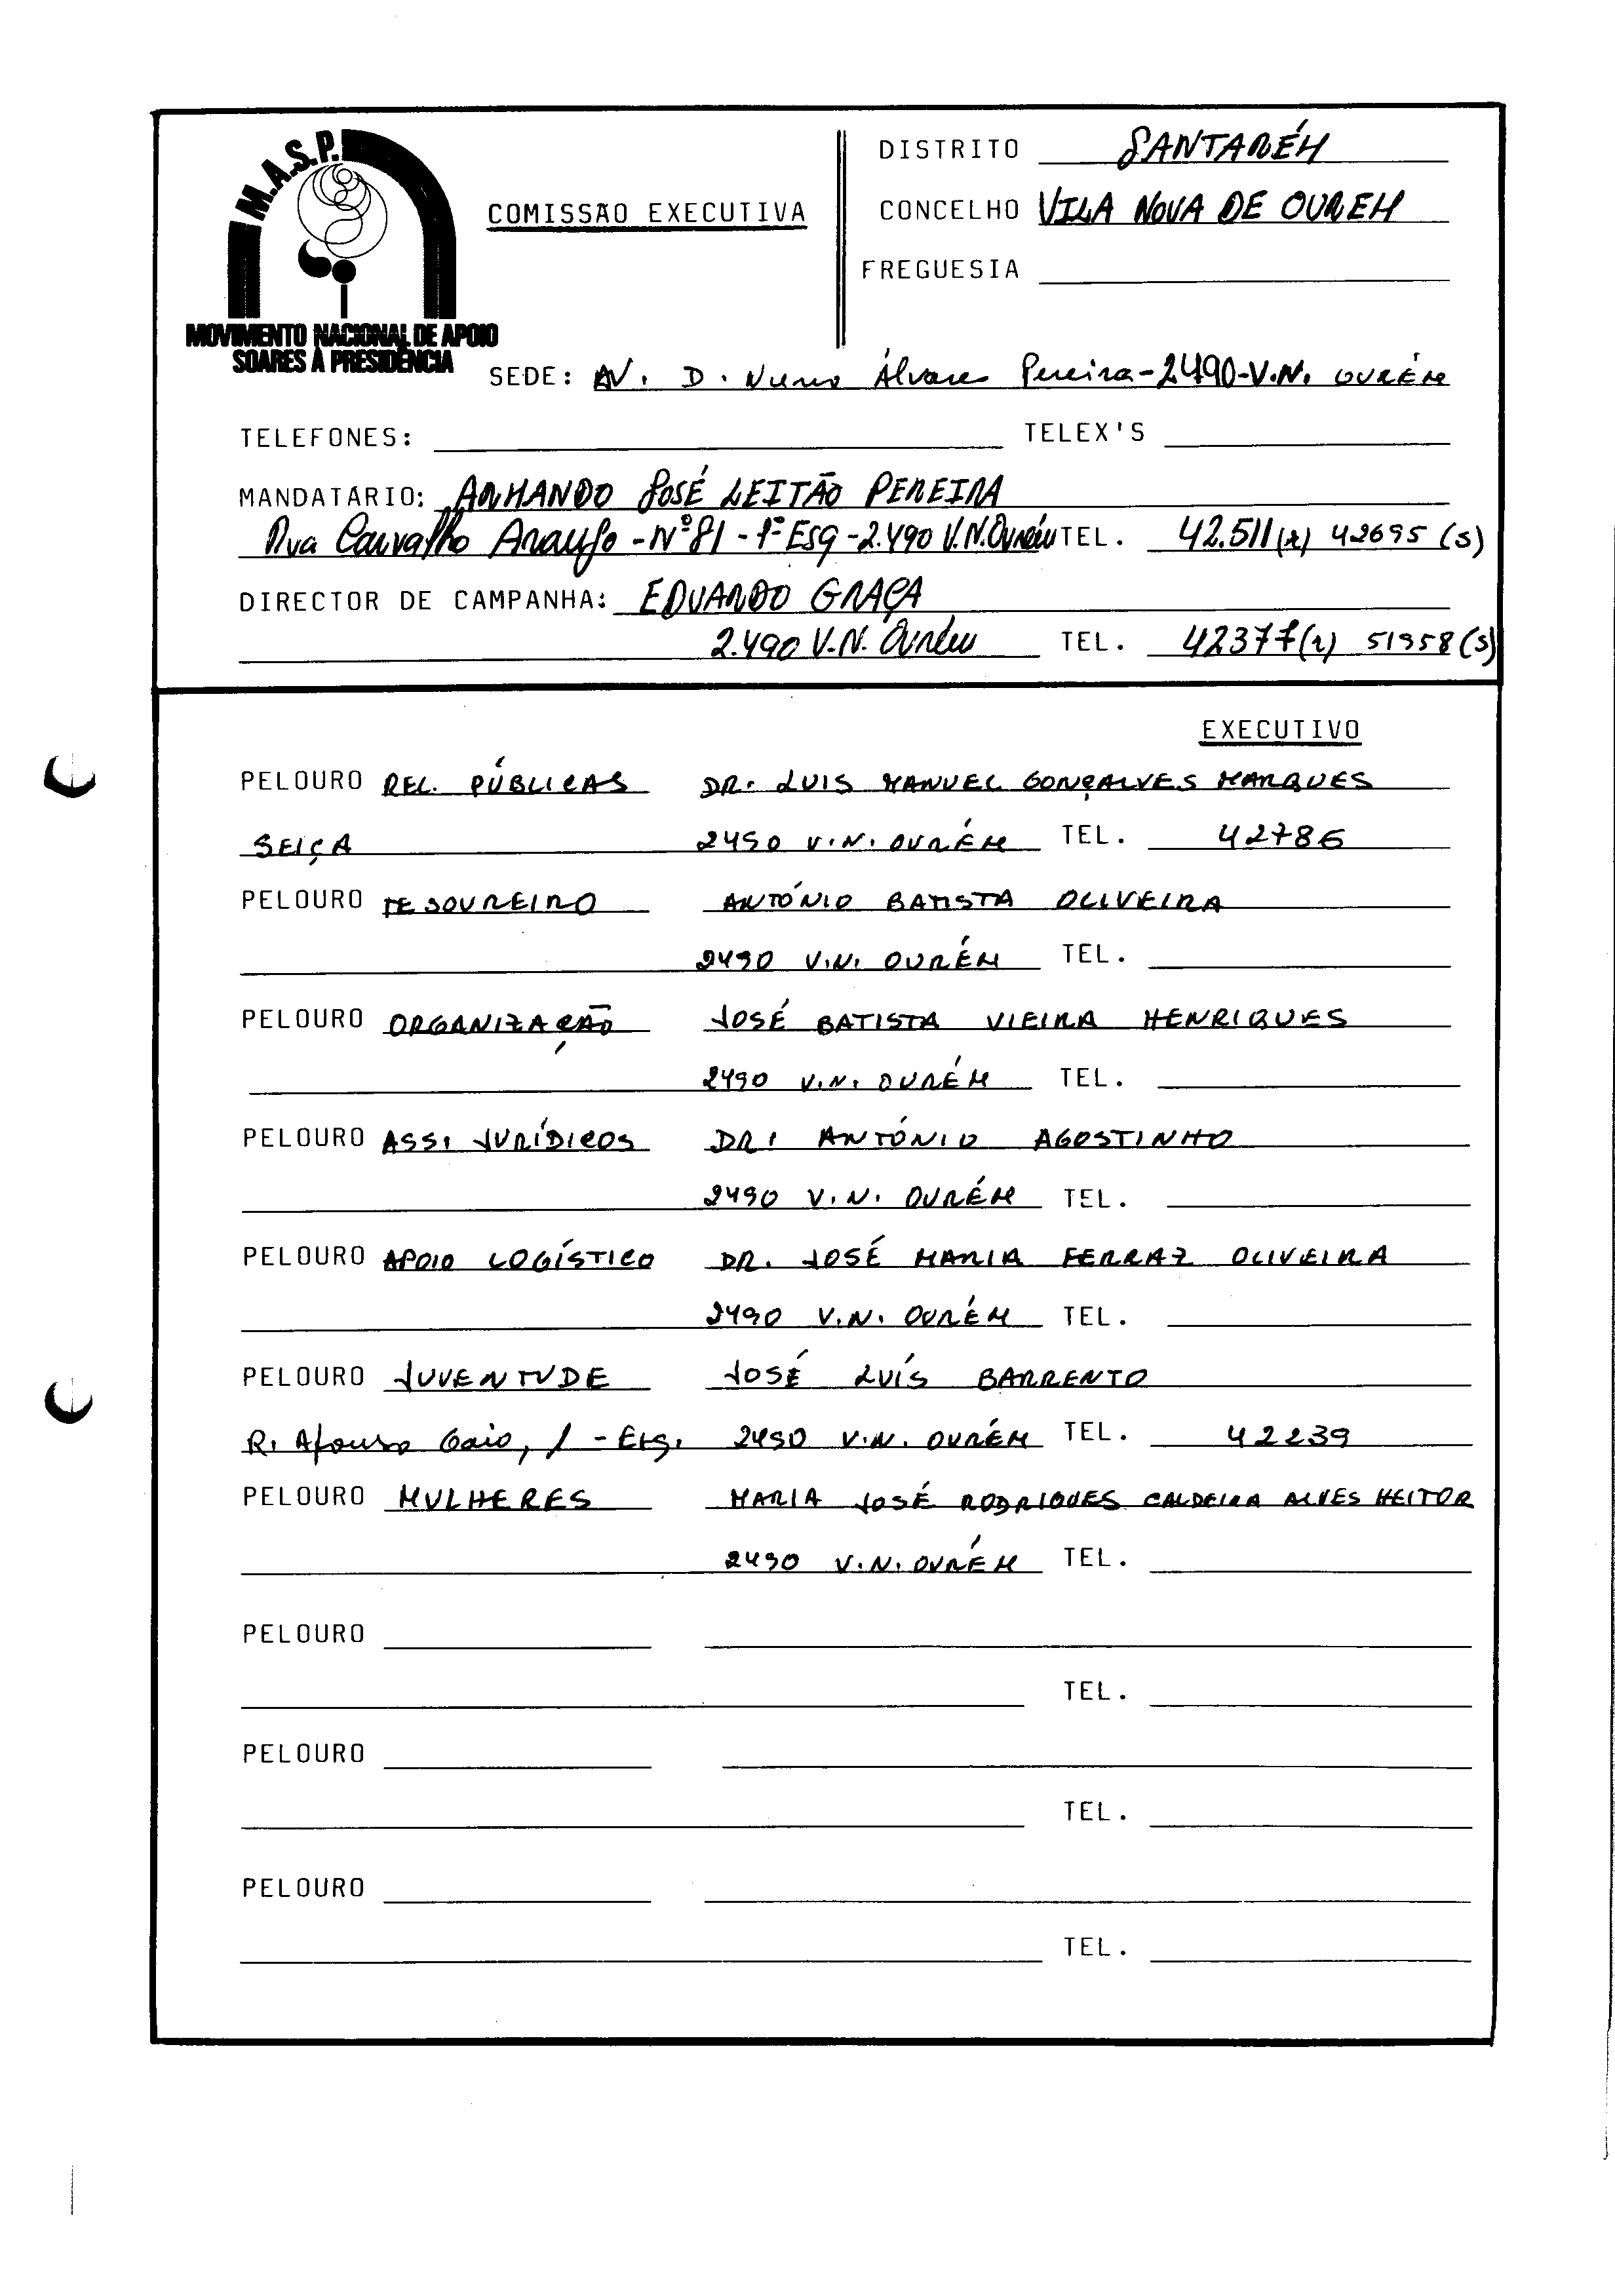 M.A.S.P.
MOVIMENTO NACIONAL DE APOIO
SOARES À PRESIDÊNCIA
COMISSÃO EXECUTIVA
DISTRITO SANTARÉM
CONCELHO VILA NOVA DE OUREM
FREGUESIA
SEDE: AV. D. Nuno Álvares Pereira-2490-V.N. OURÉM
TELEFONES: TELEX'S
MANDATÁRIO: ARMANDO JOSÉ LEITÃO PEREIRA
Rua Carvalho Araujo - Nº 81 - 1º Esq - 2.490 V.N. Ourém TEL. 42.511 (r) 42695 (s)
DIRECTOR DE CAMPANHA: EDUARDO GRAÇA
2.490 V.N. Ourém TEL. 42377 (r) 51958 (s)
EXECUTIVO
PELOURO REL. PÚBLICAS DR. LUIS MANUEL GONÇALVES MARQUES
SEIÇA 2490 V.N. OURÉM TEL. 42786
PELOURO TESOUREIRO ANTÓNIO BATISTA OLIVEIRA
2490 V.N. OURÉM TEL.
PELOURO ORGANIZAÇÃO JOSÉ BATISTA VIEIRA HENRIQUES
2490 V.N. OURÉM TEL.
PELOURO ASS. JURÍDICOS DR. ANTÓNIO AGOSTINHO
2490 V.N. OURÉM TEL.
PELOURO APOIO LOGÍSTICO DR. JOSÉ MARIA FERRAZ OLIVEIRA
2490 V.N. OURÉM TEL.
PELOURO JUVENTUDE JOSÉ LUÍS BARRENTO
R. Afonso Gaio, 1 - Esq. 2490 V.N. OURÉM TEL. 42239
PELOURO MULHERES MARIA JOSÉ RODRIGUES CALDEIRA ALVES HEITOR
2490 V.N. OURÉM TEL.
PELOURO
TEL.
PELOURO
TEL.
PELOURO
TEL.